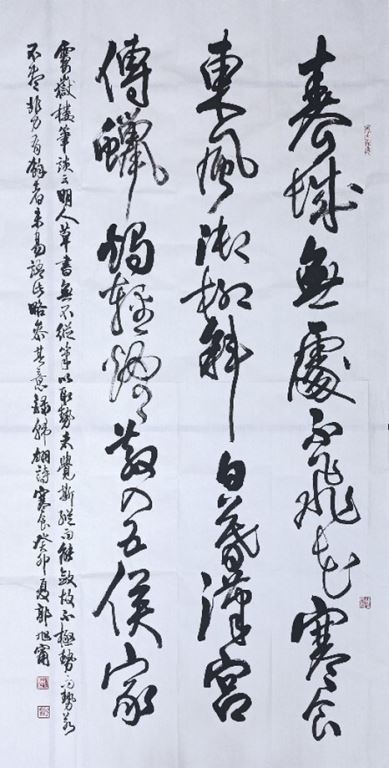 春城無處不飛花寒食
東風御柳斜日暮漢宮
傳蠟燭輕煙散入五侯家
霋嶽樓筆談云明人草書無不縱筆以取勢覺斯縱而能斂故不極勢而勢若
不盡非力有餘者未易語此略參其意錄韓翃詩寒食癸卯夏郭旭甯